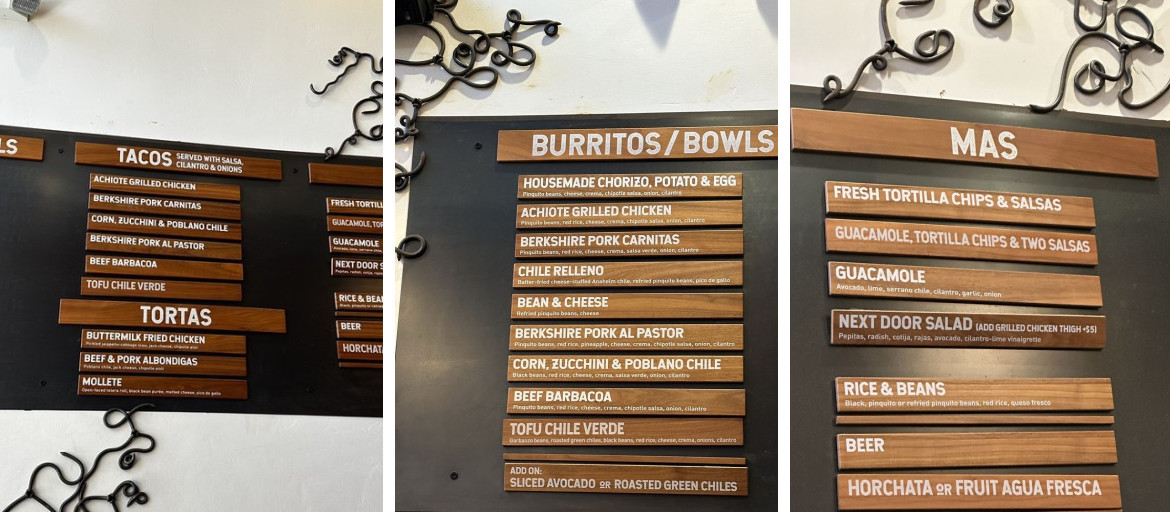 LS
TACOS SERVED WITH SALSA,
CILANTRO & ONIONS
ACHIOTE GRILLED CHICKEN
BERKSHIRE PORK CARNITAS
CORN, ZUCCHINI & POBLANO CHILE
BERKSHIRE PORK AL PASTOR
BEEF BARBACOA
TOFU CHILE VERDE
TORTAS
BUTTERMILK FRIED CHICKEN
BEEF & PORK ALBONDIGAS
MOLLETE
Open-faced telera roll, black bean purée, melted cheese, pico de gallo
FRESH TORTILL
GUACAMOLE, TOR
GUACAMOLE
NEXT DOOR S
RICE & BEA
BEER
HORCHATA
BURRITOS/BOWLS
HOUSEMADE CHORIZO, POTATO & EGG
Pinquito beans, cheese, crema, chipotle salsa, onion, cilantro
ACHIOTE GRILLED CHICKEN
Pinquito beans, red rice, cheese, crema, chipotle salsa, onion, cilantro
BERKSHIRE PORK CARNITAS
Pinquito beans, red rice, cheese, crema, salsa verde, onion, cilantro
CHILE RELLENO
Batter-fried cheese-stuffed Anaheim chile, refried pinquito beans, pico de gallo
BEAN & CHEESE
Refried pinquito beans, cheese
BERKSHIRE PORK AL PASTOR
Pinquito beans, red rice, pineapple, cheese, crema, chipotle salsa, onion, cilantro
CORN, ZUCCHINI & POBLANO CHILE
Black beans, red rice, cheese, crema, salsa verde, onion, cilantro
BEEF BARBACOA
Pinquito beans, red rice, cheese, crema, chipotle salsa, onion, cilantro
TOFU CHILE VERDE
Garbanzo beans, roasted green chiles, black beans, red rice, cheese, crema, onions, cilantro
ADD ON:
SLICED AVOCADO OR ROASTED GREEN CHILES
MAS
FRESH TORTILLA CHIPS & SALSAS
GUACAMOLE, TORTILLA CHIPS & TWO SALSAS
GUACAMOLE
Avocado, lime, serrano chile, cilantro, garlic, onion
NEXT DOOR SALAD (ADD GRILLED CHICKEN THIGH +$5)
Pepitas, radish, cotija, rajas, avocado, cilantro-lime vinaigrette
RICE & BEANS
Black, pinquito or refried pinquito beans, red rice, queso fresco
BEER
HORCHATA OR FRUIT AGUA FRESCA